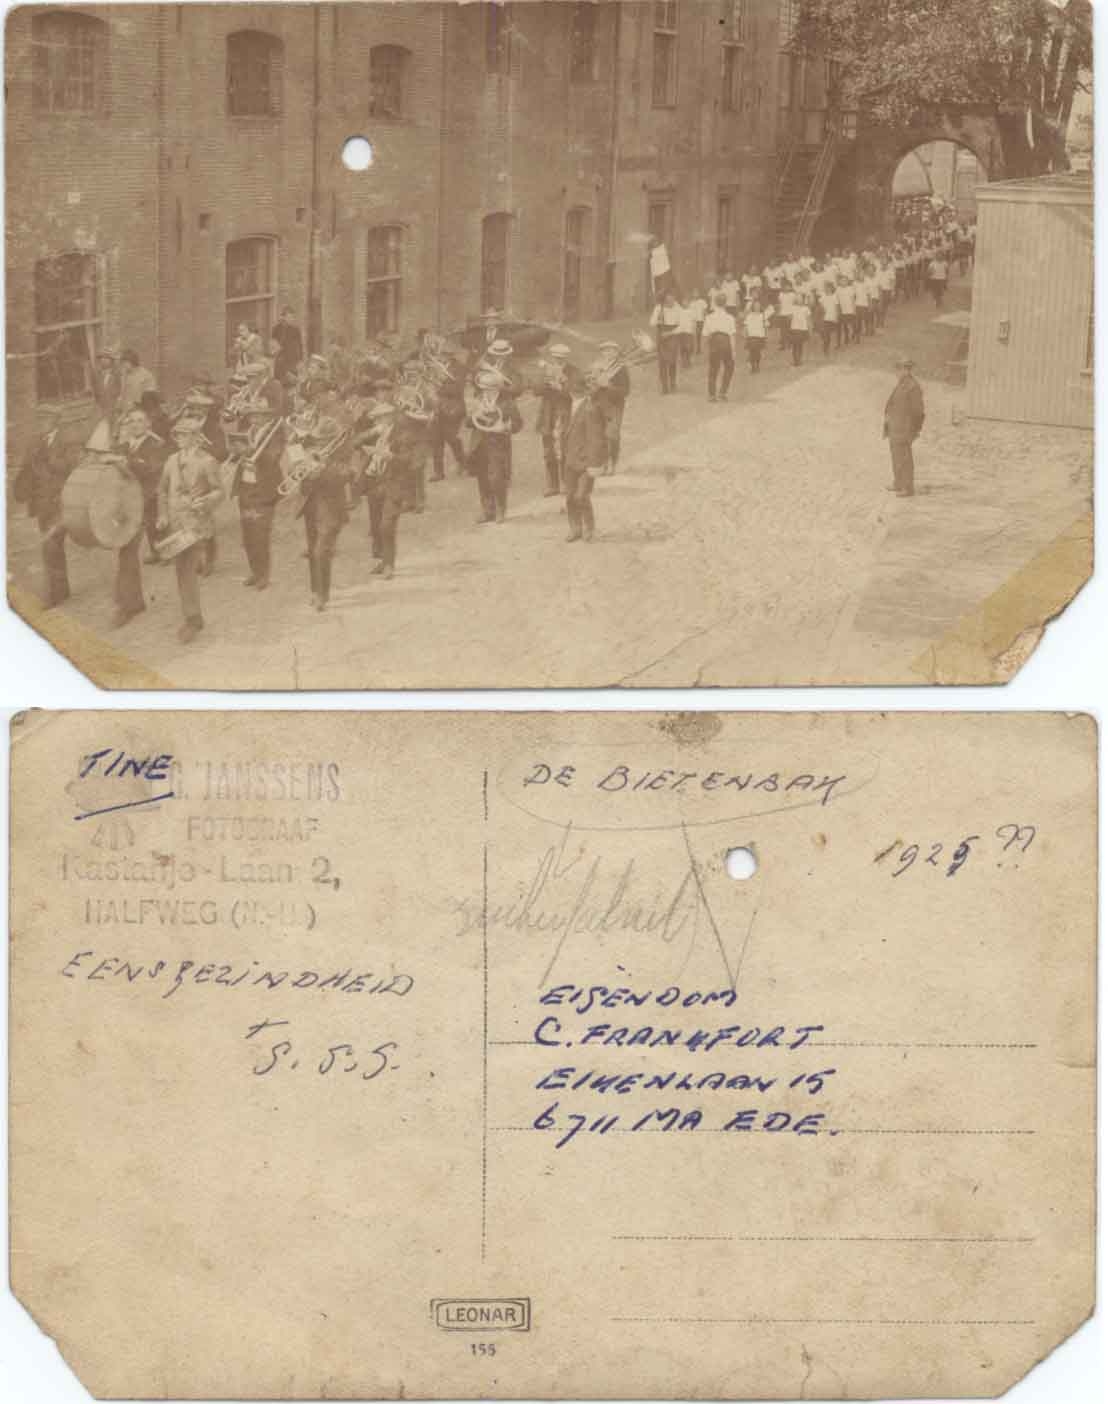 TINE
C. JANSSENS
FOTOGRAAF
Kastanje-Laan 2,
HALFWEG (N.-H.)
EENSGEZINDHEID
+
S.S.S.
DE BIETENBAK
1925 ??
EIGENDOM
C. FRANKFORT
EIKENLAAN 15
6711 MA EDE.
LEONAR
155